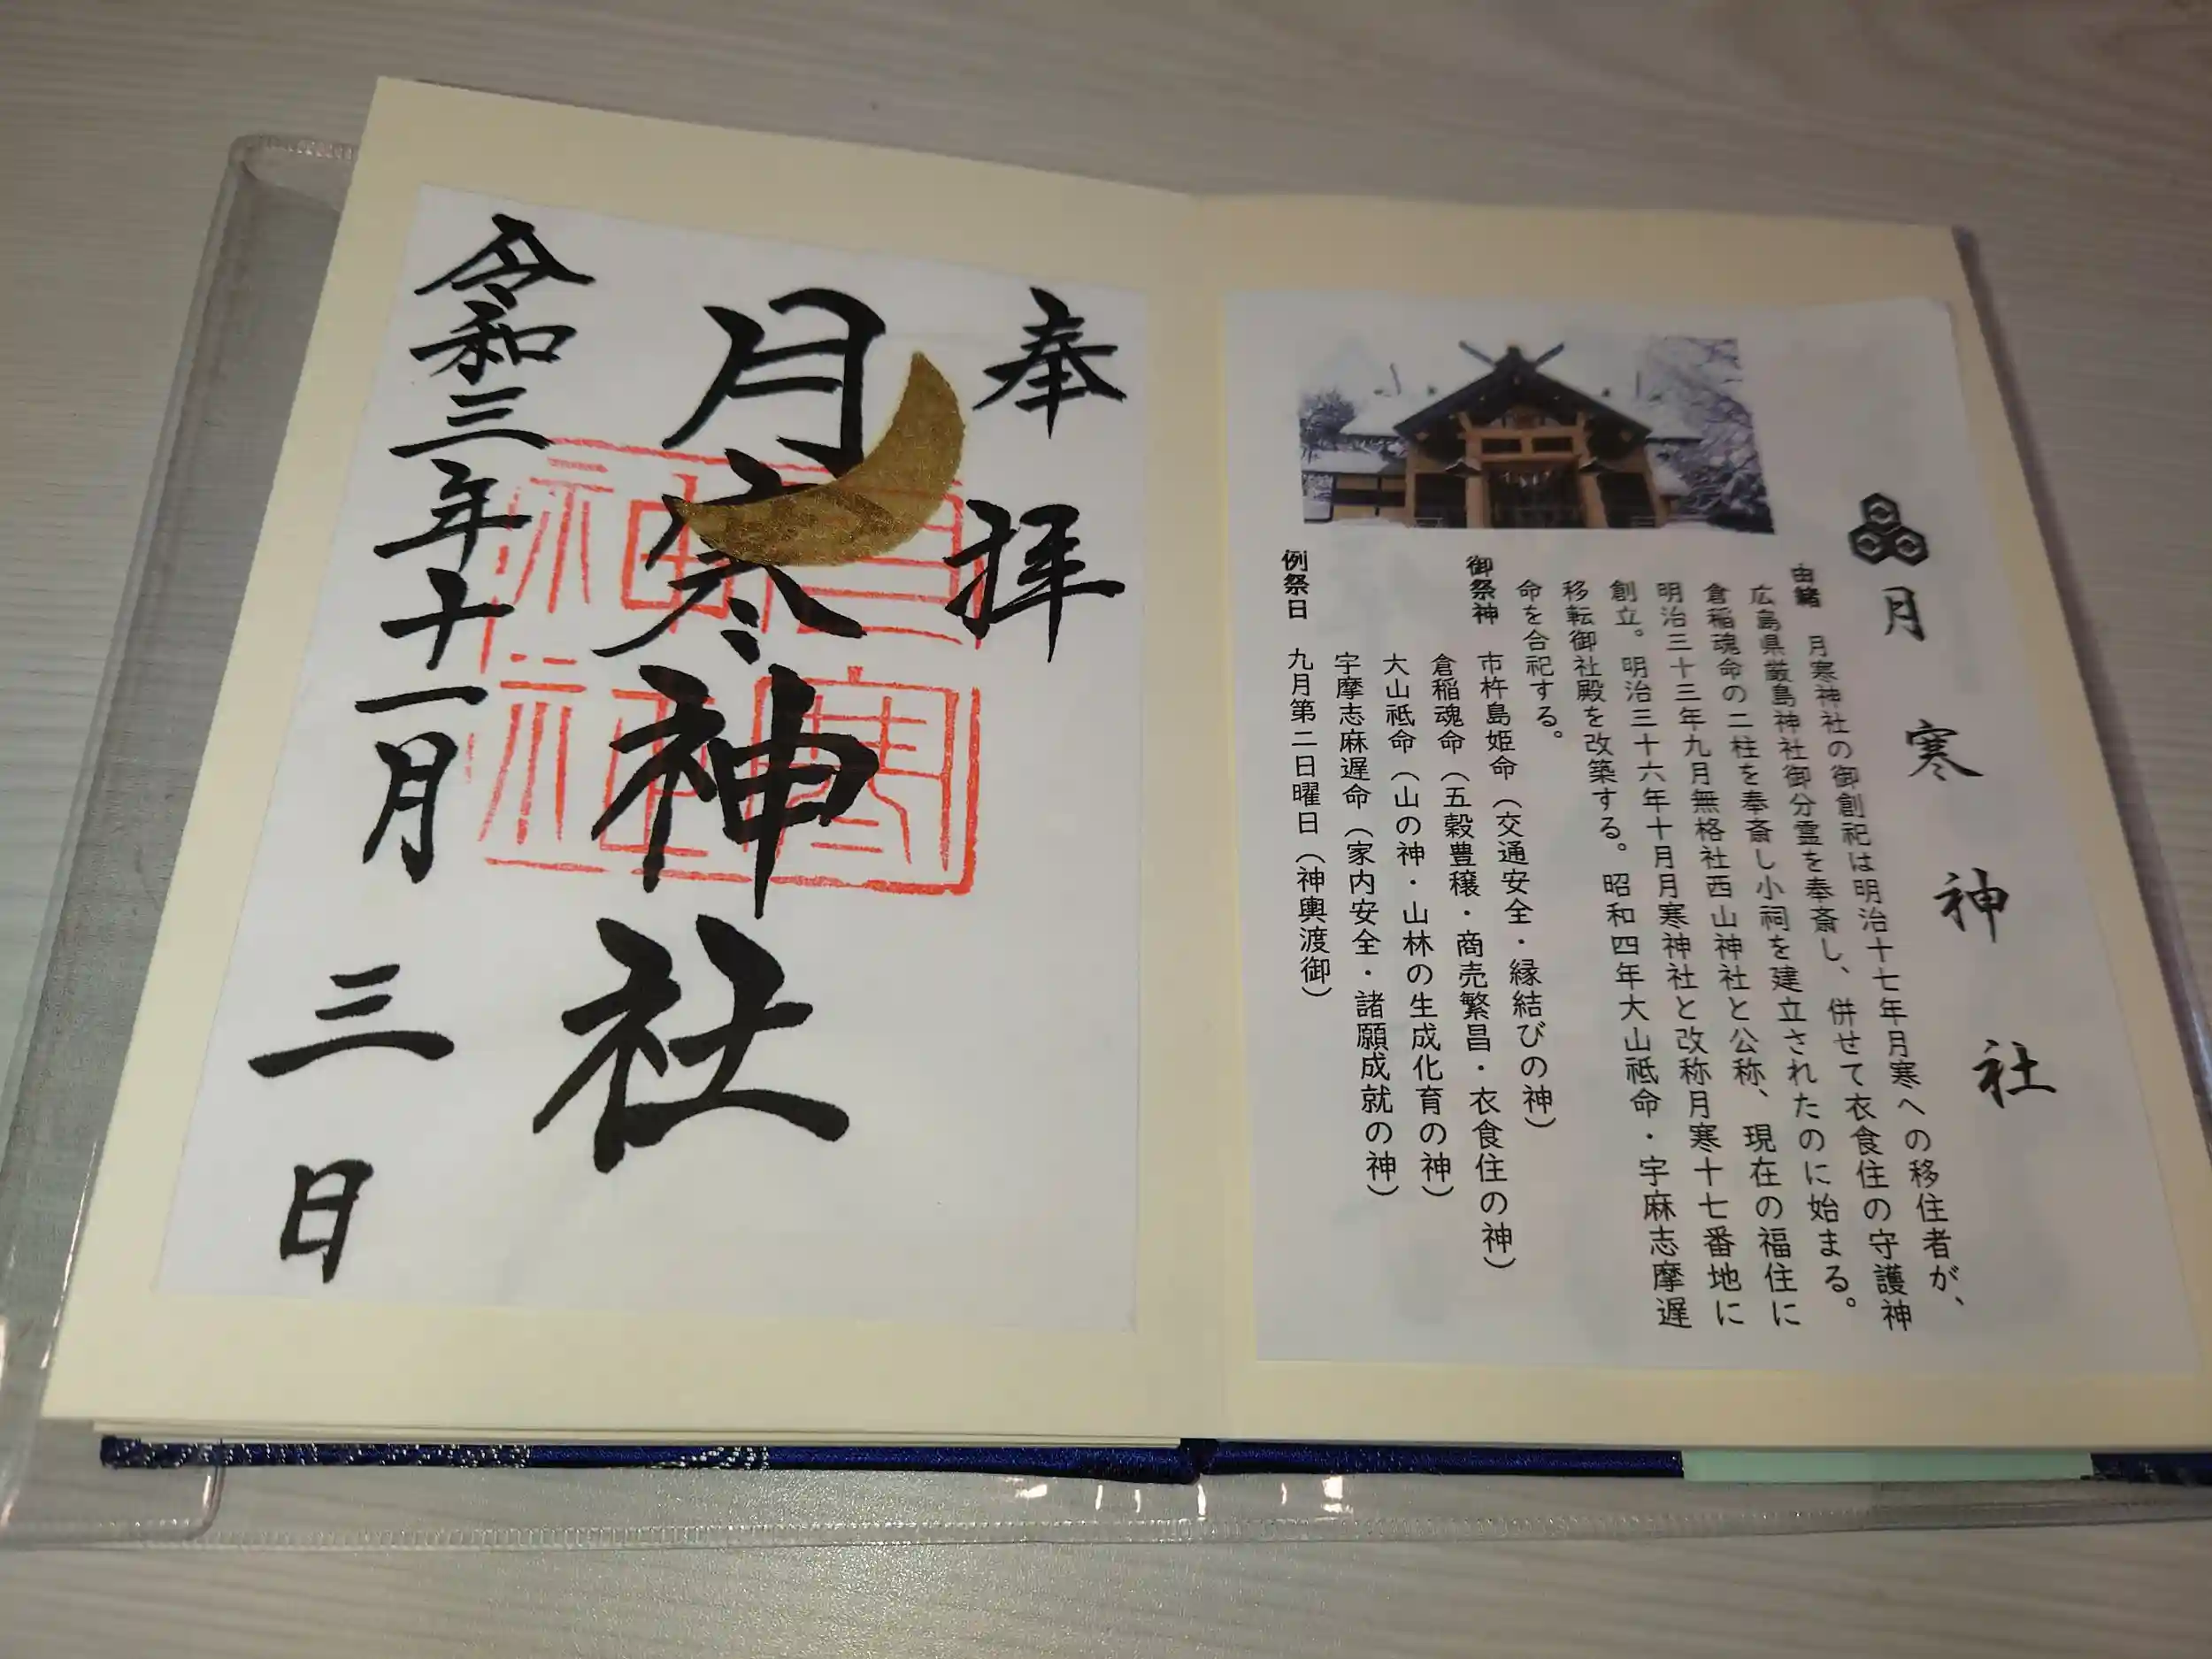 月寒神社
由緒 月寒神社の御創祀は明治十七年月寒への移住者が、
広島県厳島神社御分霊を奉斎し、併せて衣食住の守護神
倉稲魂命の二柱を奉斎し小祠を建立されたのに始まる。
明治三十三年九月無格社西山神社と公称、現在の福住に
創立。明治三十六年十月月寒神社と改称月寒十七番地に
移転御社殿を改築する。昭和四年大山祇命・宇麻志摩遅
命を合祀する。
御祭神 市杵島姫命（交通安全・縁結びの神）
倉稲魂命（五穀豊穣・商売繁昌・衣食住の神）
大山祗命（山の神・山林の生成化育の神）
宇摩志麻遅命（家内安全・諸願成就の神）
例祭日 九月第二日曜日（神輿渡御）
奉拝
月寒神社
月寒神社
令和三年十一月三日